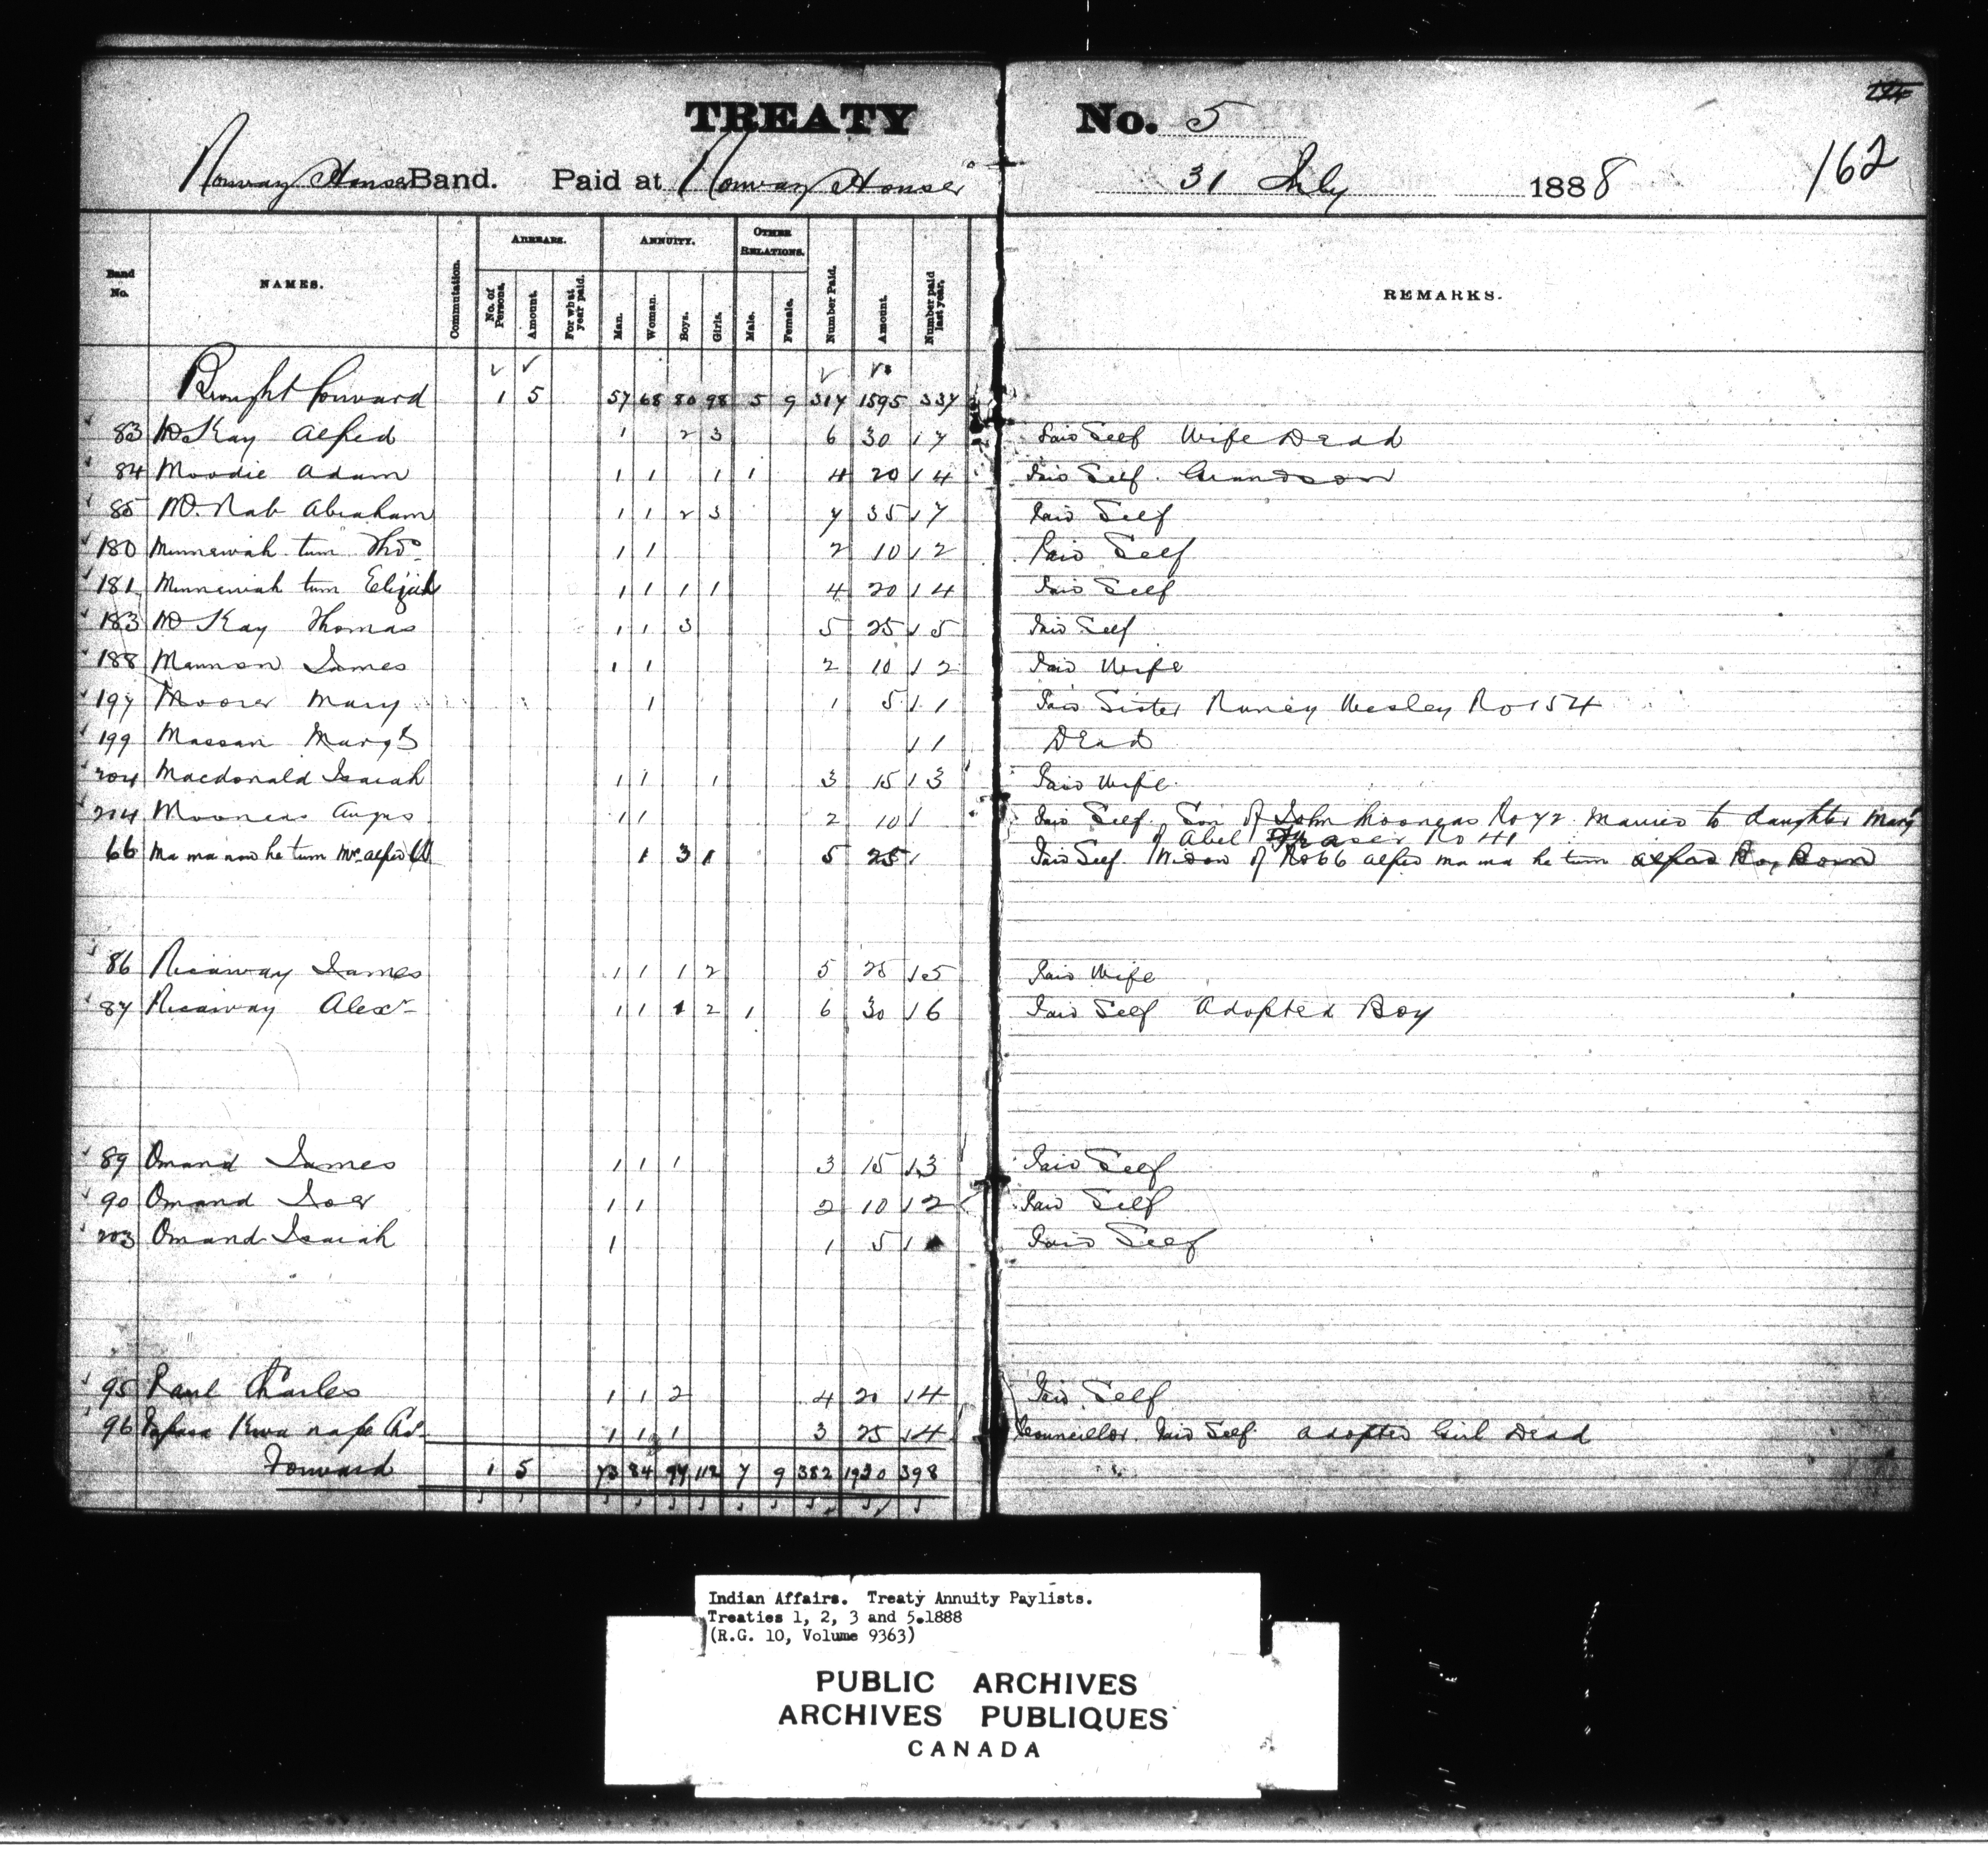 TREATY No. 5
162
Norway House Band. Paid at Norway House 31 July 1888
Band No. NAMES. Commutation. ARREARS. No. of Persons. Amount. For what year paid. ANNUITY. Man. Woman. Boys. Girls. OTHER RELATIONS. Male. Female. Number Paid. Amount. Number paid last year. REMARKS.
Brought forward 1 5 57 68 80 98 5 9 317 1595 337
83 McKay Alfred 1 2 3 6 30 7 Paid Self Wife Dead
84 Moodie Adam 1 1 1 1 4 20 4 Paid Self. Grandson
85 McNab Abraham 1 1 2 3 7 35 7 Paid Self
180 Minnewah tum Thos 1 1 2 10 2 Paid Self
181 Minnewah tum Elijah 1 1 1 1 4 20 4 Paid Self
183 McKay Thomas 1 1 3 5 25 5 Paid Self
188 James 1 1 2 10 2 Paid Wife
197 Moore Mary 1 1 5 1 Paid Sister Nancy Wesley No 154
199 Massan Margt 1 Dead
204 Macdonald Isaiah 1 1 1 3 15 3 Paid Wife
214 Mooneas Angus 1 1 2 10 Paid Self. Son of John Mooneas No 72 Married to daughter Mary
of Abel Fraser No 41
66 Ma ma now he tum Mrs Alfred 1 3 1 5 25 Paid Self. Widow of No 66 Alfred ma ma he tum Boy Born
86 James 1 1 1 2 5 25 5 Paid Wife
87 Alexr 1 1 1 2 1 6 30 6 Paid Self Adopted Boy
89 Omand James 1 1 1 3 15 3 Paid Self
90 Omand Joe 1 1 2 10 2 Paid Self
203 Omand Isaiah 1 1 5 Paid Self
95 Paul Charles 1 1 2 4 20 4 Paid Self
96 Kwa nape 1 1 1 3 25 4 Councillor. Paid Self. Adopted Girl Dead
Forward 1 5 73 84 97 112 7 9 382 1930 398
Indian Affairs. Treaty Annuity Paylists.
Treaties 1, 2, 3 and 5.1888
(R.G. 10, Volume 9363)
PUBLIC ARCHIVES
ARCHIVES PUBLIQUES
CANADA